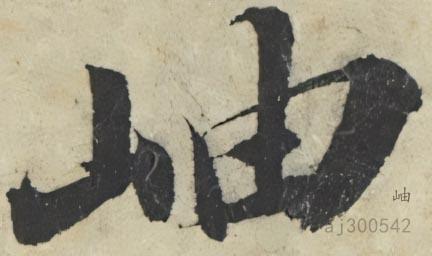 岫
岫
aj300542